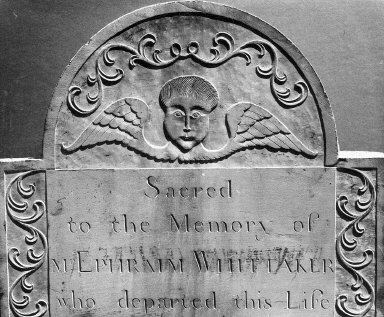 Sacred
to the Memory of
Mr EPHRAIM WHITTAKER
who departed this Life